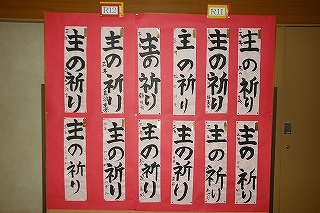 R12
R11
主の祈り
主の祈り
主の祈り
主の祈り
主の祈り
主の祈り
主の祈り
主の祈り
主の祈り
主の祈り
主の祈り
主の祈り